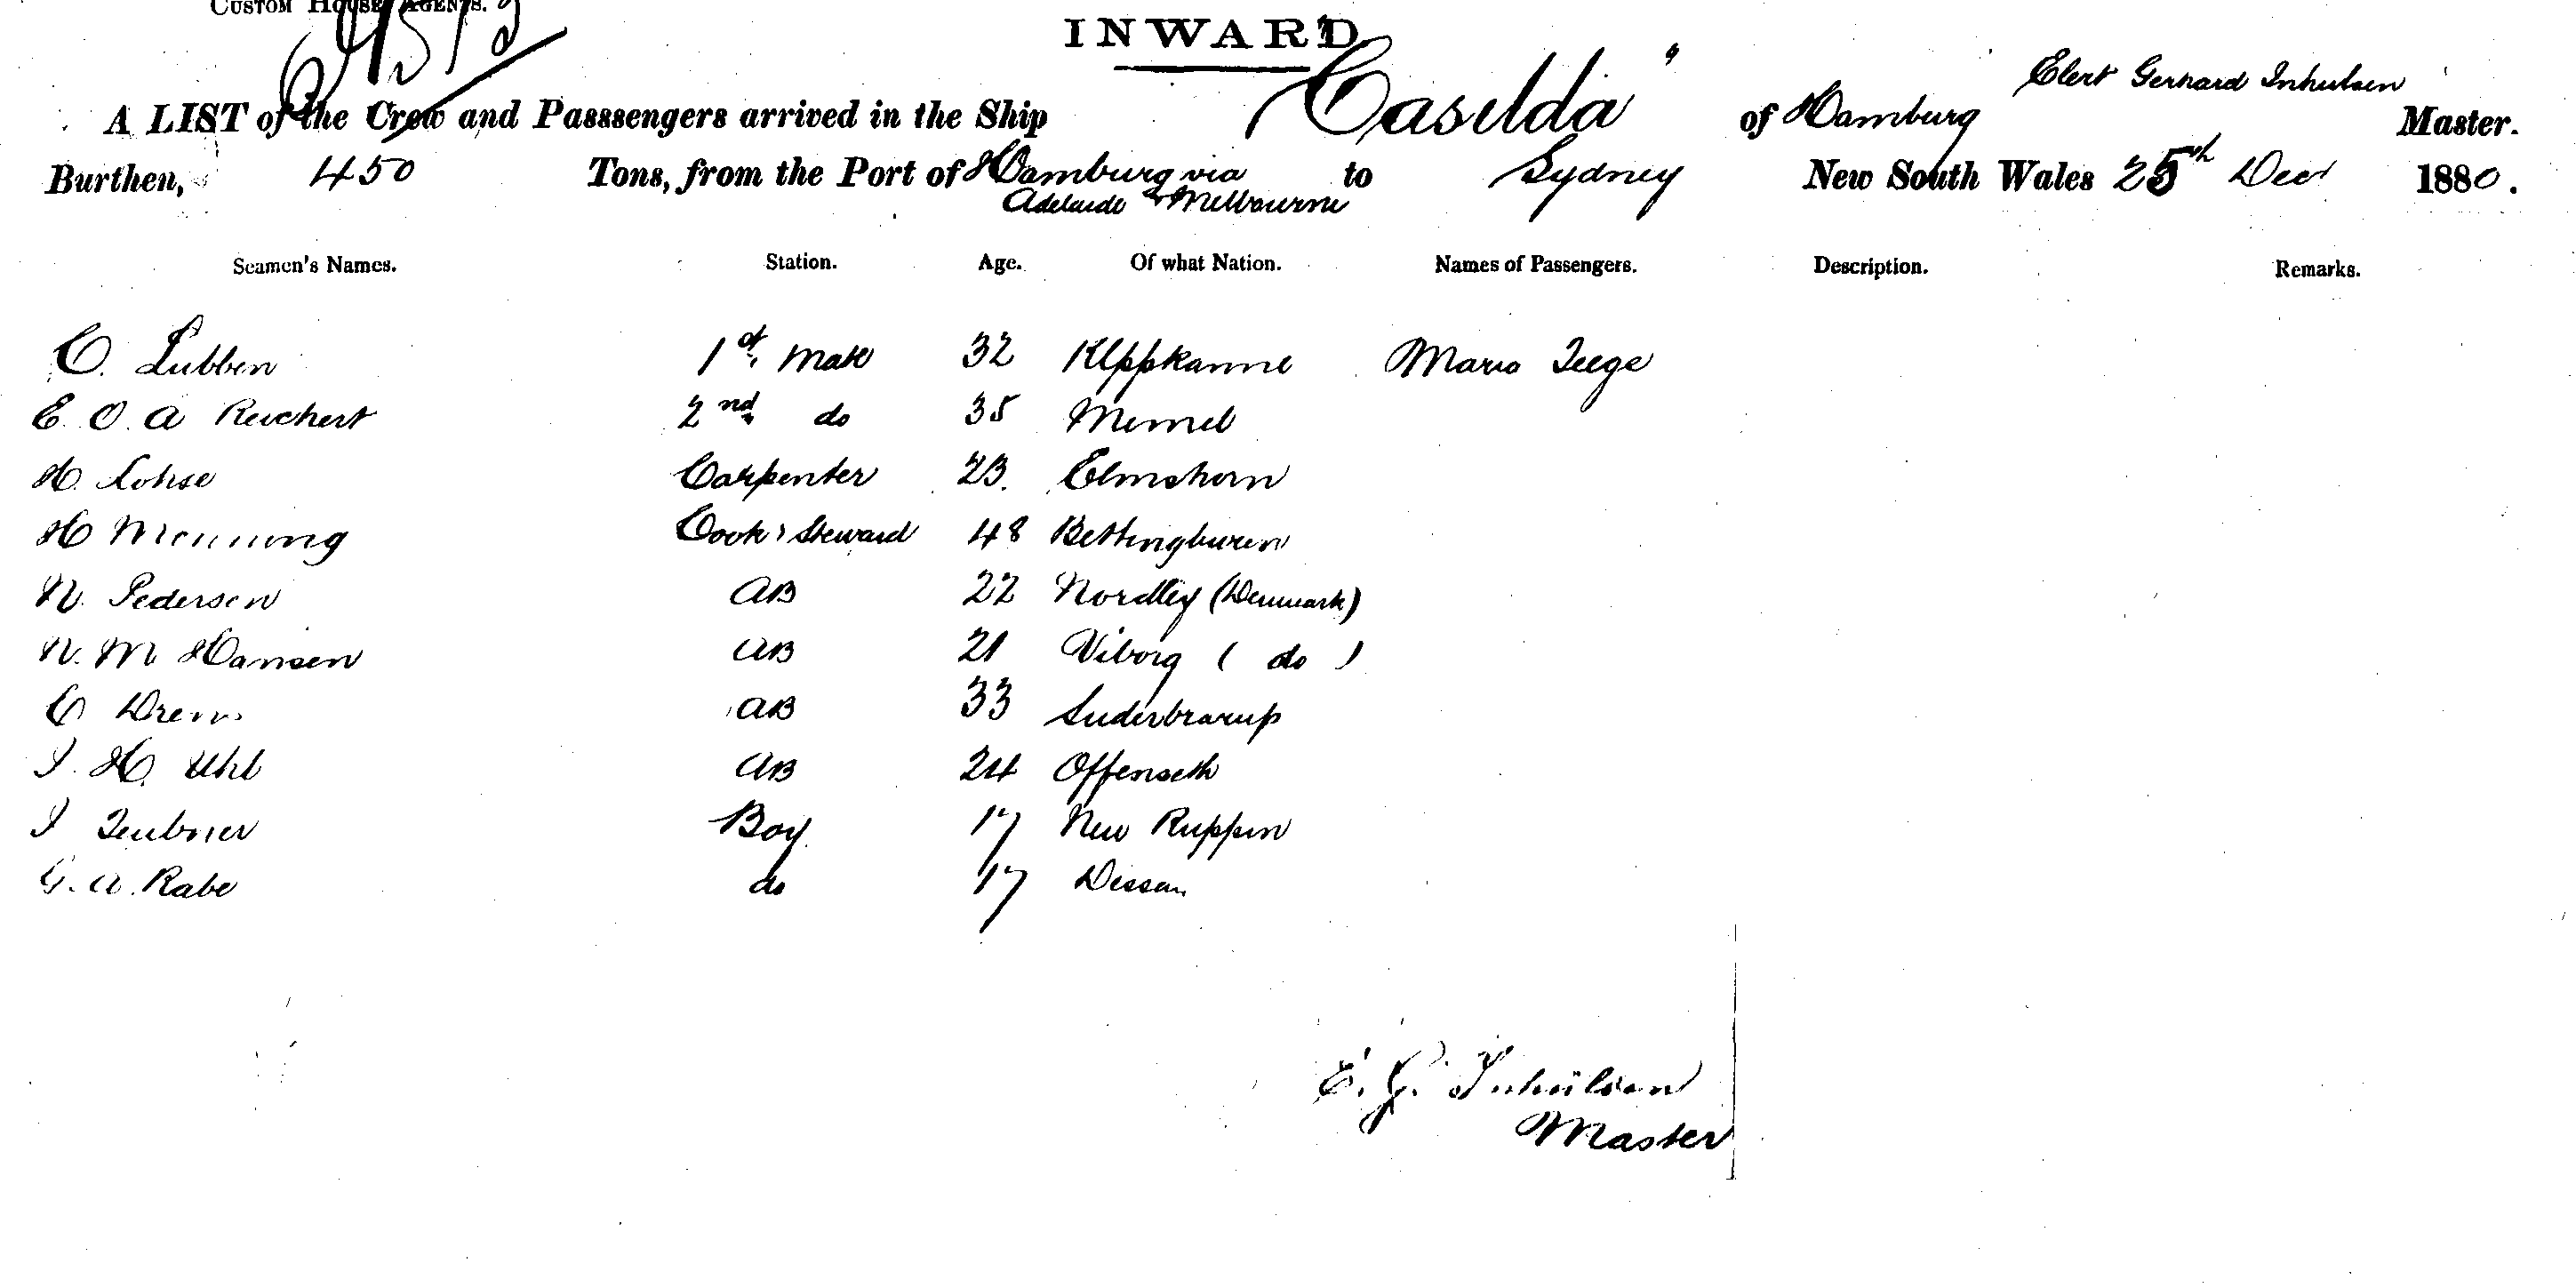 CUSTOM HOUSE AGENTS.
INWARD
A LIST of the Crew and Passsengers arrived in the Ship "Casilda" of Hamburg Elert Gerhard Inhulsen Master.
Burthen, 450 Tons, from the Port of Hamburg via Adelaide & Melbourne to Sydney New South Wales 25th Dec 1880.
Seamen's Names. Station. Age. Of what Nation. Names of Passengers. Description. Remarks.
C. Lubben 1st. Mate 32 Klippkanne Maria Teege
E. O. A Reichert 2nd do 35 Memel
H. Lohse Carpenter 23. Elmshorn
H Menning Cook & Steward 48 Bettingburen
N. Pedersen AB 22 (Denmark)
N. M Hansen AB 21 Viborg ( do )
C AB 33 Suderbrarup
J. H. Uhl AB 24 Offenseth
J Teubner Boy 17 New Ruppin
G. A. Rabe do 17 Dessau
E. G. Inhülsen
Master